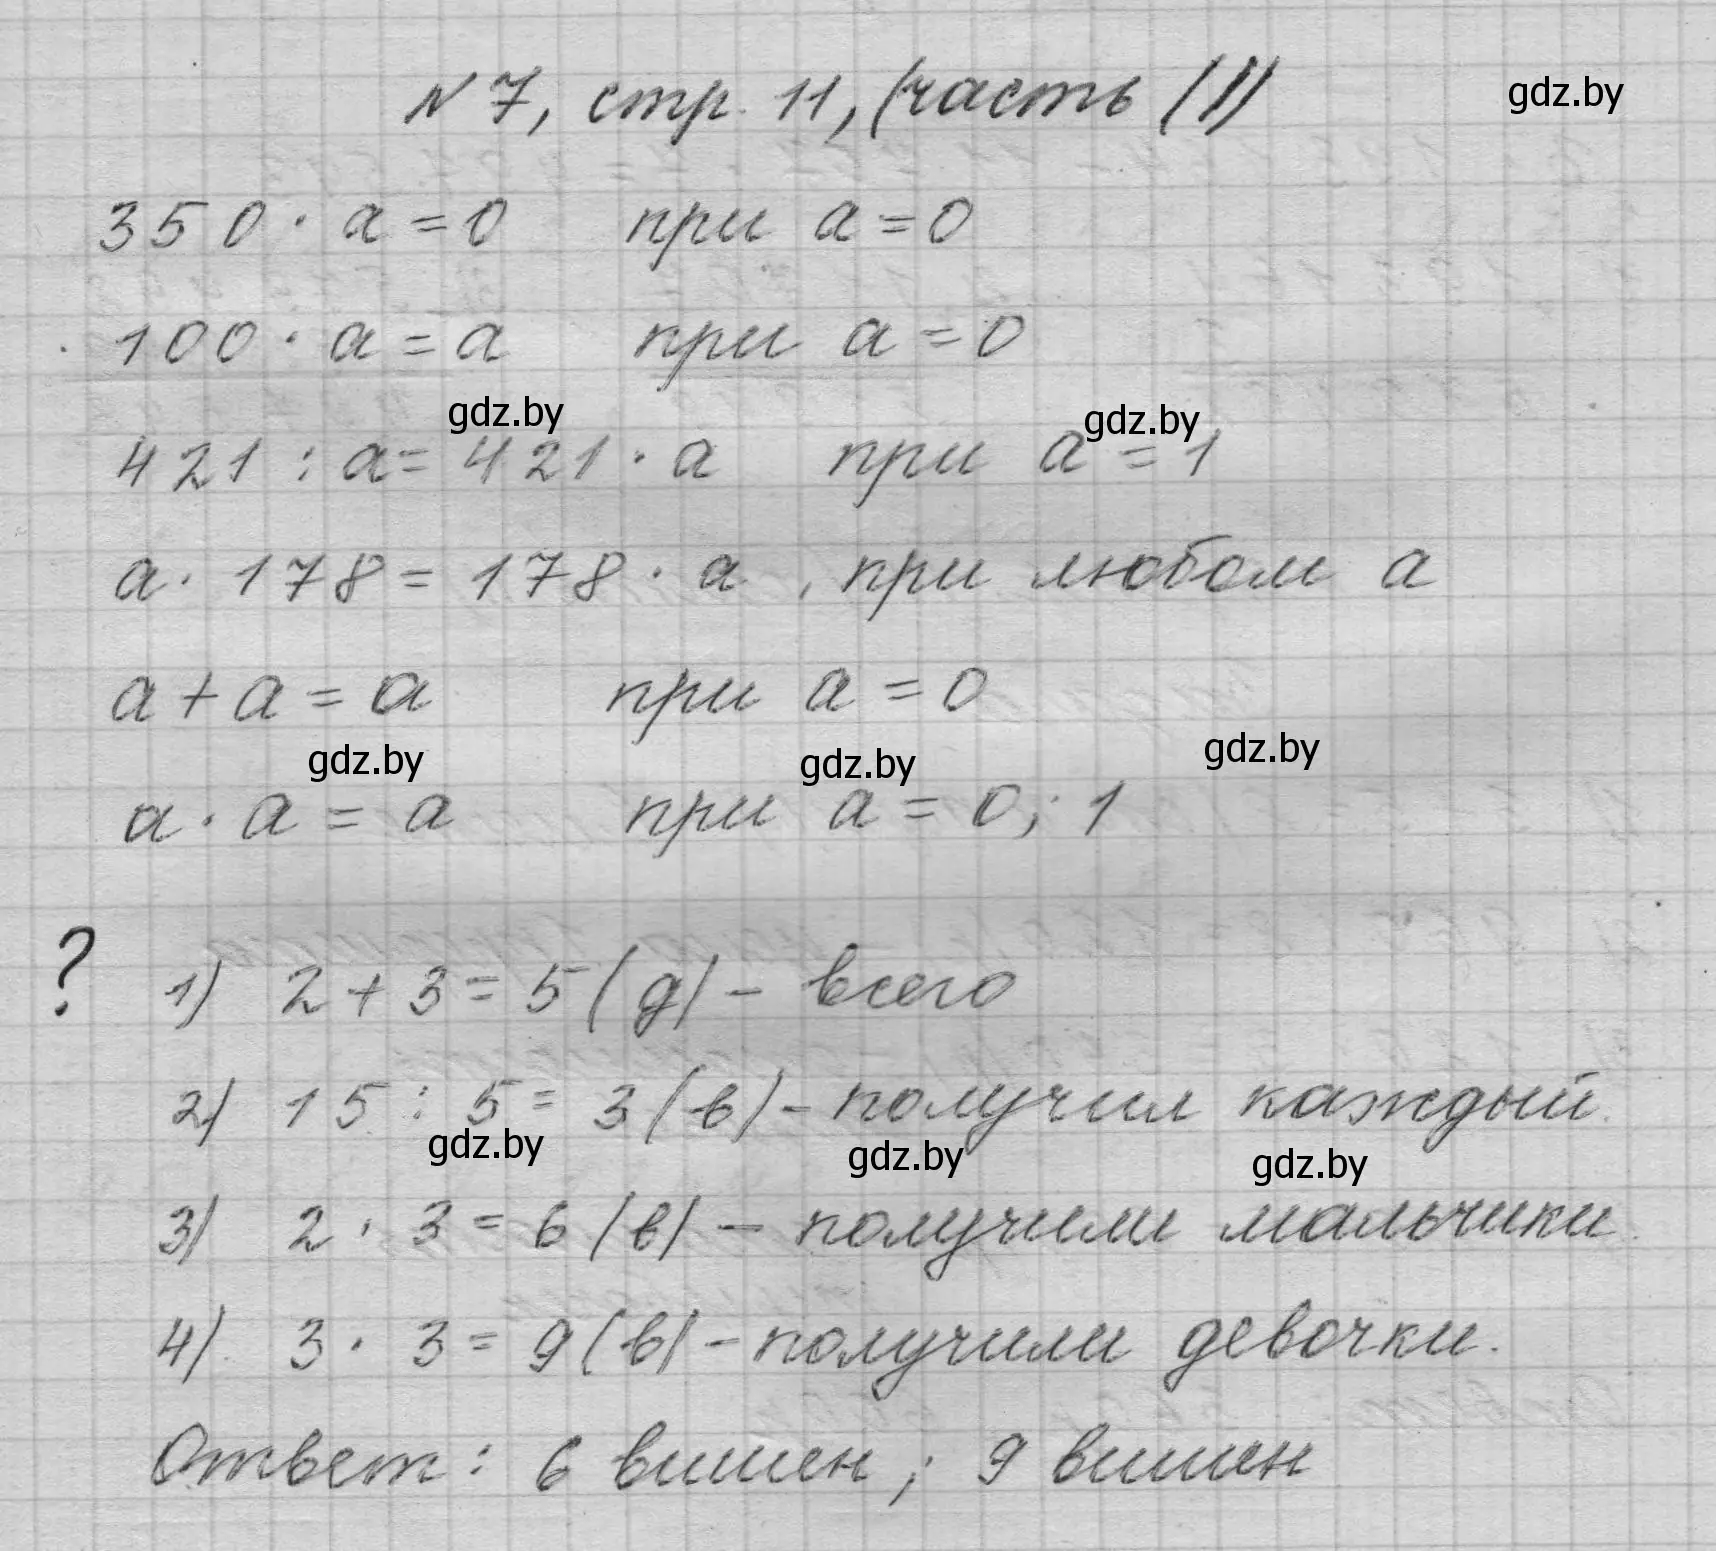 N 7, стр. 11, (часть (I)
gdz.by
350 · a = 0 при a = 0
100 · a = a при a = 0
gdz.by gdz.by
421 : a = 421 · a при a = 1
a · 178 = 178 · a , при любом a
a + a = a при a = 0
gdz.by gdz.by gdz.by
a · a = a при a = 0; 1
? 1) 2 + 3 = 5 (д) - всего
2) 15 : 5 = 3 (в) - получил каждый.
gdz.by gdz.by gdz.by
3) 2 · 3 = 6 (в) - получили мальчики.
4) 3 · 3 = 9 (в) - получили девочки.
Ответ: 6 вишен; 9 вишен